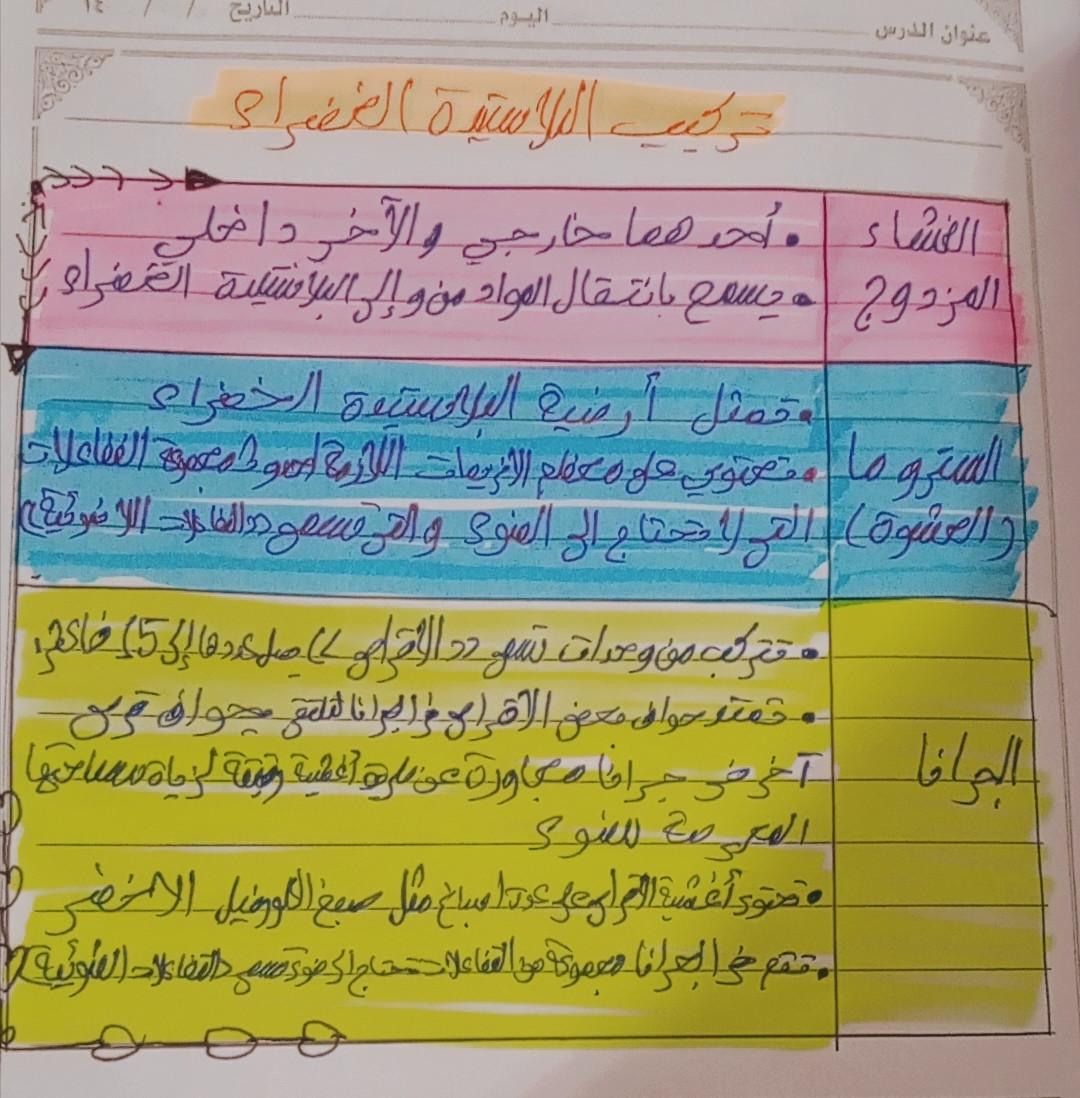 عنوان الدرس
اليوم
التاريخ / / ١٤
تركيب البلاستيدة الخضراء
الغشاء المزدوج
• أحدهما خارجي والآخر داخلي
• يسمح بانتقال المواد من وإلى البلاستيدة الخضراء
الستروما
(الحشوة)
• تمثل أرضية البلاستيدة الخضراء
• تحتوي على معظم الانزيمات اللازمة لحدوث مجموعة التفاعلات
التي لا تحتاج إلى الضوء والتي تسمى ((التفاعلات اللاضوئية))
الجرانا
• تتركب من وحدات تسمى ((الأقراص)) يصل عددها إلى 15 قرص
• تمتد حواف بعض الأقراص في الجرانا لتلتقي بحواف قرص
آخر في جرانا مجاورة عن طريق أغشية رقيقة لزيادة مساحتها
المعرضة للضوء
• تحتوي أغشية الأقراص على عدة أصباغ مثل صبغ الكلوروفيل الاخضر
• تتم في الجرانا مجموعة من التفاعلات تحتاج إلى ضوء تسمى ((التفاعلات الضوئية))